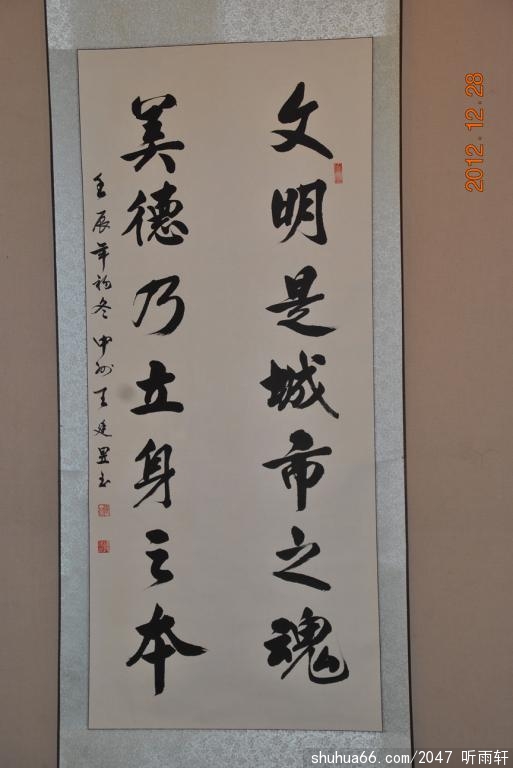 文明是城市之魂
美德乃立身之本
壬辰年初冬中州王廷昱书
2012.12.28
shuhua66.com/2047 听雨轩